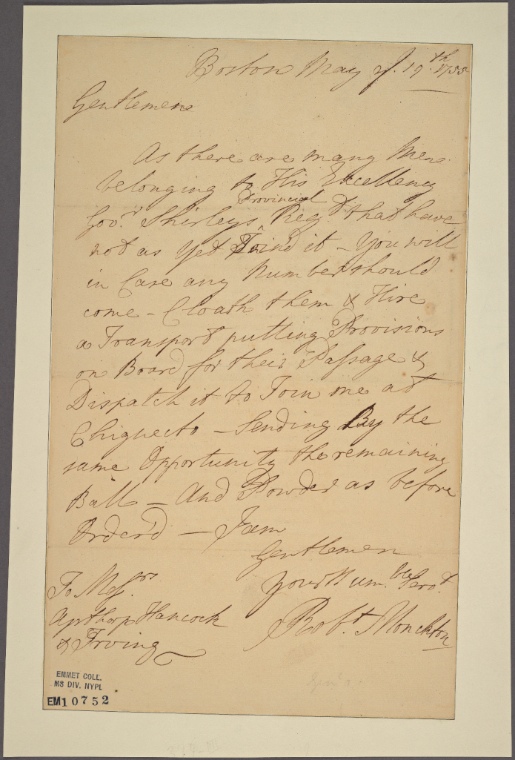 Boston May yᵉ. 19.ᵗʰ 1755
Gentlemen
As there are many Men
belonging to His Excellency
Govʳ. Shirleys Provincial Regᵗ that have
not as yet Join'd it – You will
in Case any Number should
come – Cloath them & Hire
a Transport putting Provisions
on Board for their Passage &
Dispatch it to Join me at
Chignecto – Sending By the
same Opportunity the remaining
Ball – And Powder as before
Order'd – I am
Gentlemen
Your Humᵇˡᵉ Servᵗ.
Robᵗ. Monckton
To Messʳˢ.
Apthorp Hancock
& Erving
EMMET COLL.
MS DIV. NYPL
EM10752